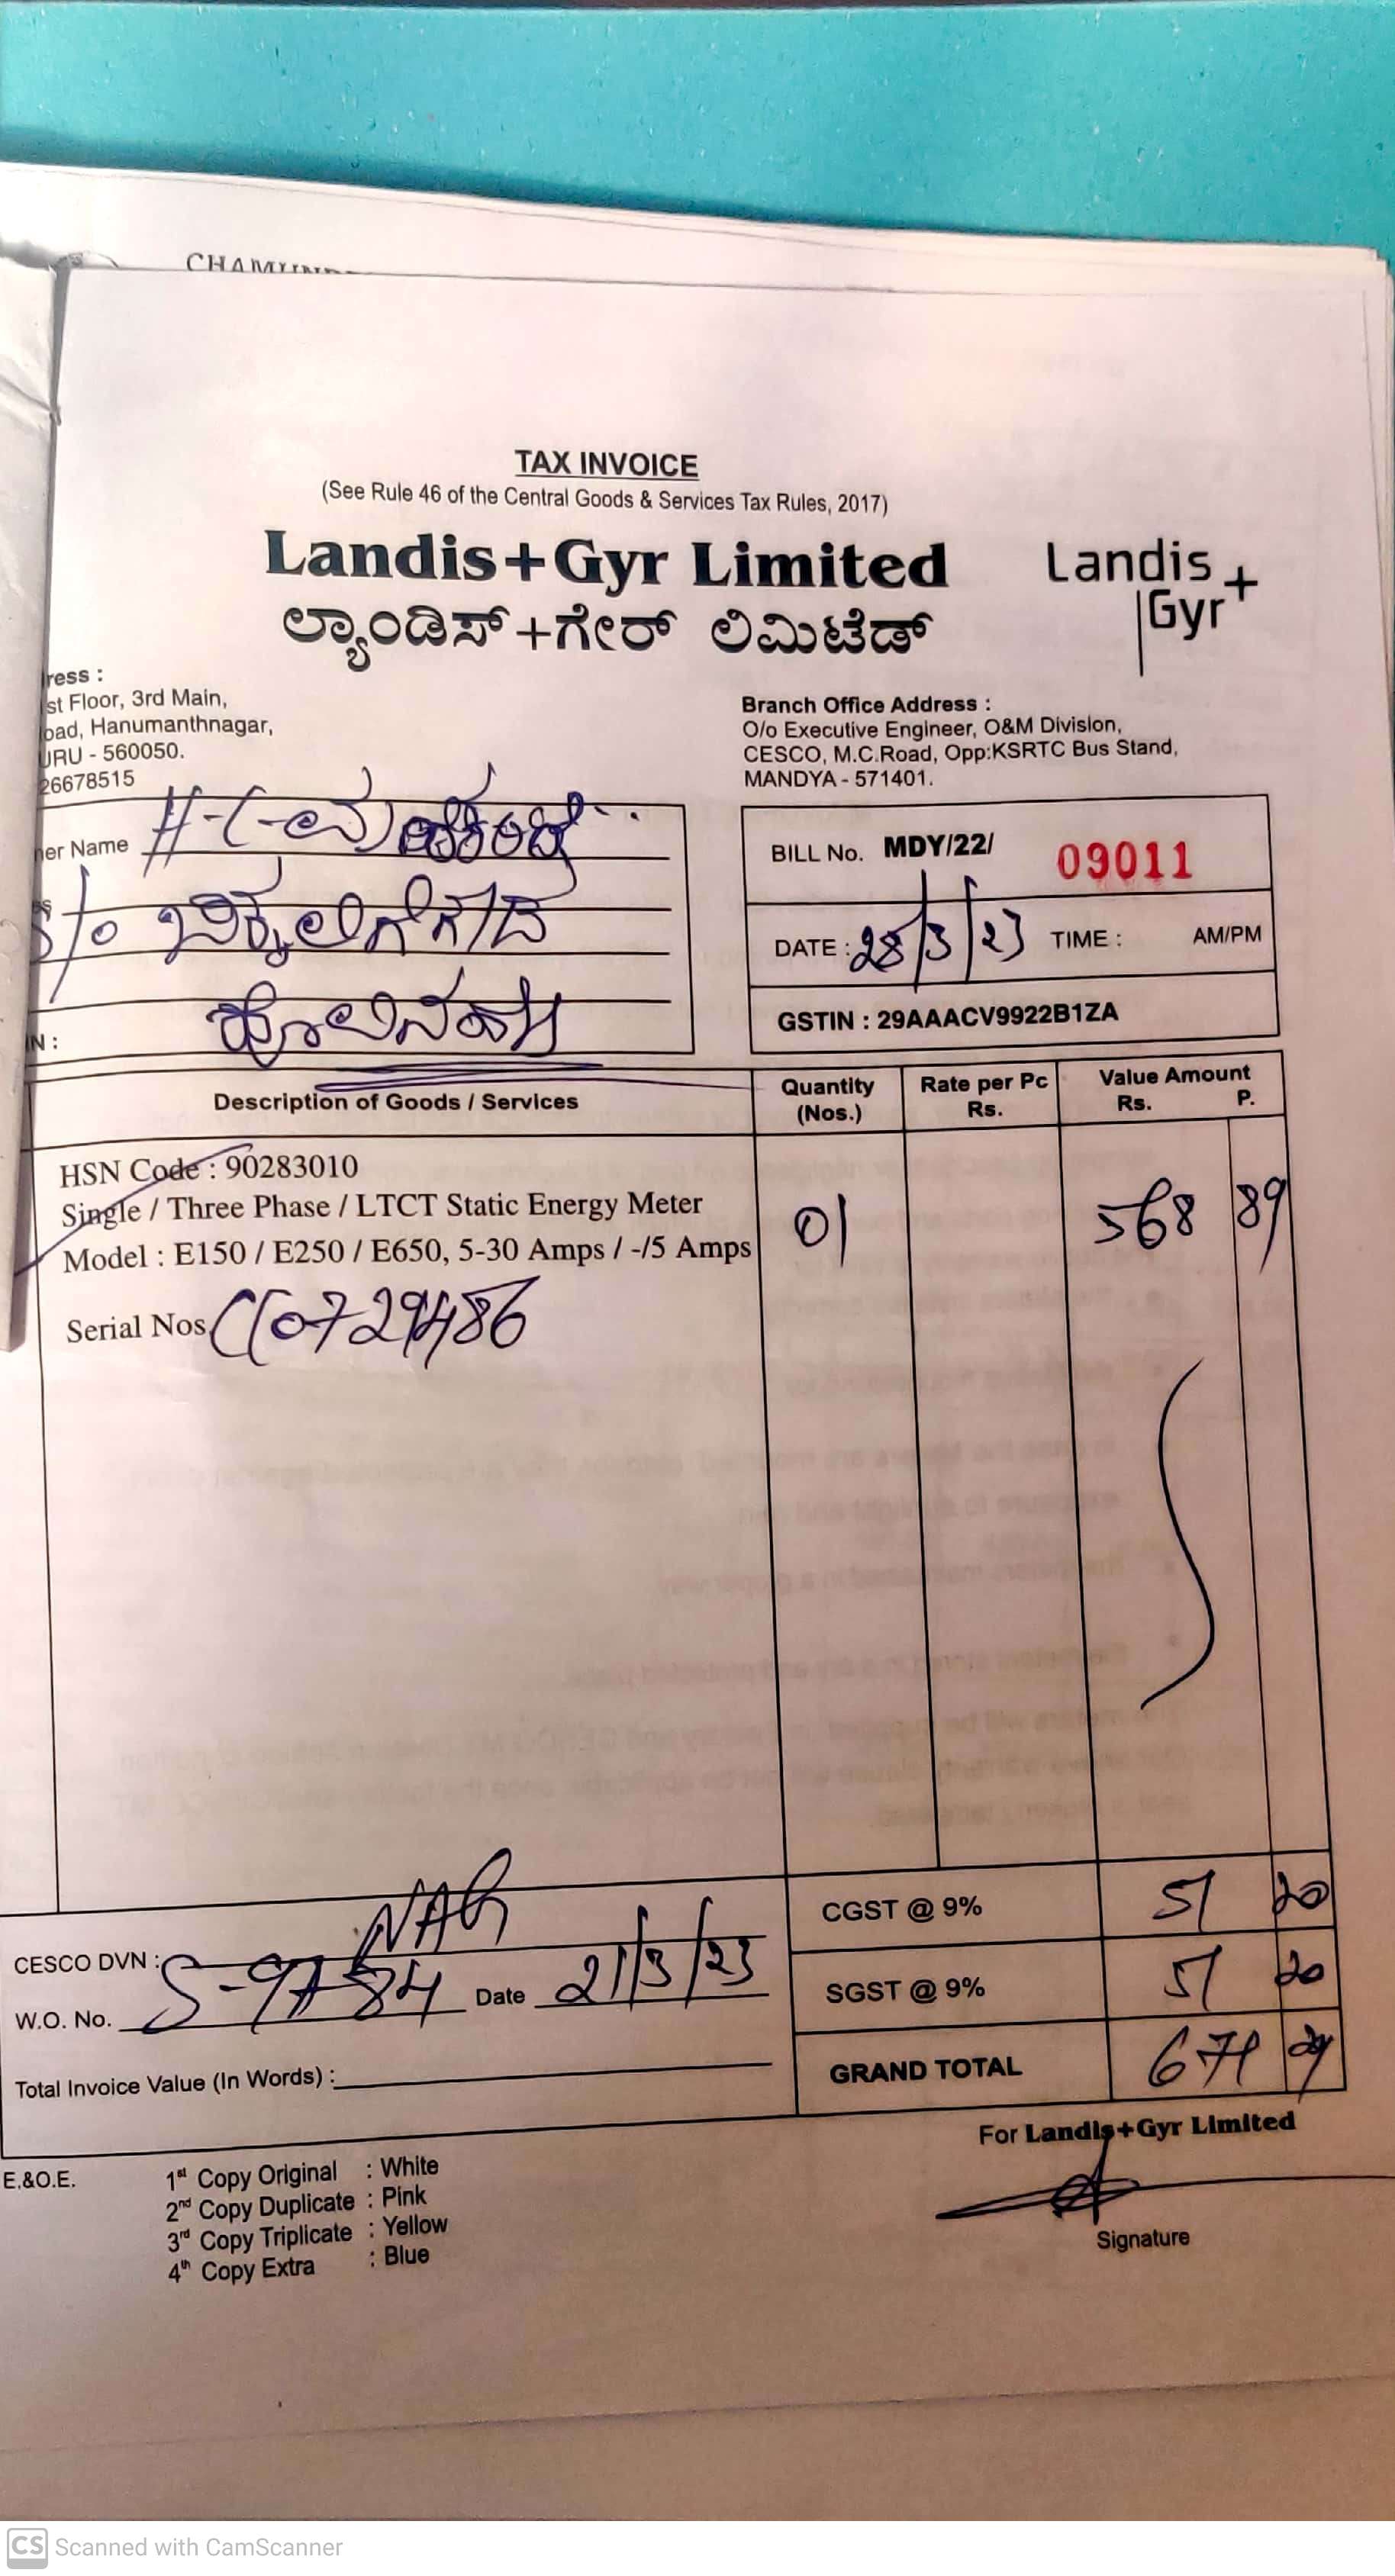 CHAMUND
TAX INVOICE
(See Rule 46 of the Central Goods & Services Tax Rules, 2017)
Landis+Gyr Limited
ಲ್ಯಾಂಡಿಸ್+ಗೇರ್ ಲಿಮಿಟೆಡ್
Landis
Gyr+
ress :
st Floor, 3rd Main,
oad, Hanumanthnagar,
URU - 560050.
26678515
Branch Office Address :
O/o Executive Engineer, O&M Division,
CESCO, M.C.Road, Opp:KSRTC Bus Stand,
MANDYA - 571401.
ner Name
S/o
N :
BILL No. MDY/22/ 09011
DATE : 28/3/23 TIME : AM/PM
GSTIN : 29AAACV9922B1ZA
Description of Goods / Services
Quantity (Nos.)
Rate per Pc Rs.
Value Amount Rs. P.
HSN Code : 90283010
Single / Three Phase / LTCT Static Energy Meter
Model : E150 / E250 / E650, 5-30 Amps / -/5 Amps
01 568 89
Serial Nos CC0729486
CGST @ 9% 51 20
SGST @ 9% 51 20
GRAND TOTAL 671 29
CESCO DVN :
W.O. No. S-9784 Date 21/3/23
Total Invoice Value (In Words) :
For Landis+Gyr Limited
Signature
E.&O.E.
1st Copy Original : White
2nd Copy Duplicate : Pink
3rd Copy Triplicate : Yellow
4th Copy Extra : Blue
CS Scanned with CamScanner